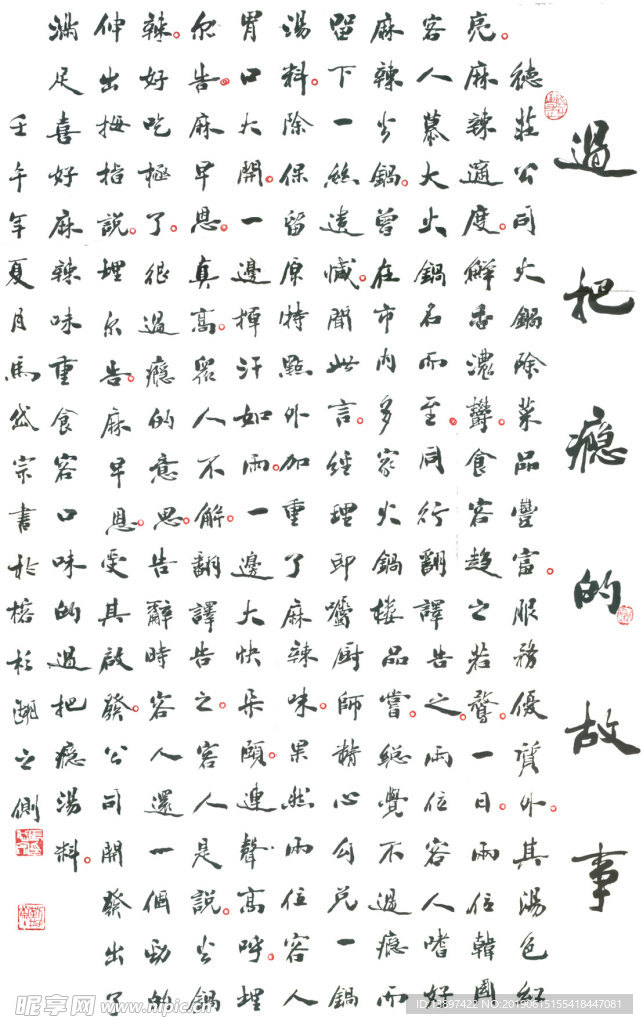 過把瘾的故事
德莊公司火鍋除菜品豐富。服務優質外。其湯色紅
亮。麻辣適度。鮮香濃鬱。食客趋之若鶩。一日。兩位韓國
客人慕大火鍋名而至。同行翻譯告之。兩位客人嗜好
麻辣火鍋。曾在市内多家火鍋樓品嘗。總覺不過瘾而
留下一絲遺憾。聞此言。經理即囑厨師精心勾兑一鍋
湯料。除保留原特點外加重了麻辣味。果然兩位客人
胃口大開。一邊揮汗如雨。一邊大快朵頤。連聲高呼。埋
尔告。麻早恩。真高。眾人不解。翻譯告之。客人是說。火鍋
辣。好吃極了。很過瘾的意思。告辭時。客人還一個勁的
伸出拇指說。埋尔告。麻早恩。受其啟發。公司開發出了
滿足喜好麻辣味重食客口味的過把瘾湯料。
壬午年夏月馬岱宗書於榕杉湖之側
昵享网 www.nipic.cn
NO:20190615155418447081